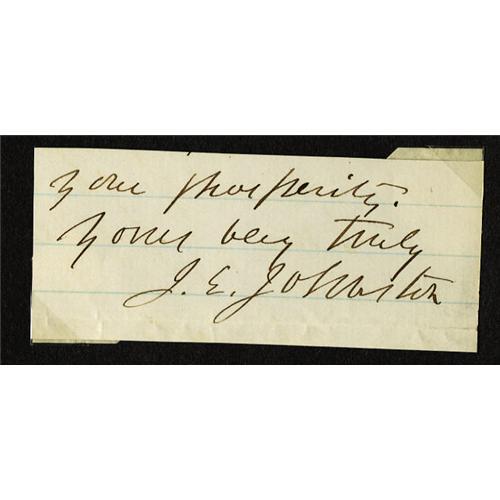 your prosperity.
Yours very truly
J. E. Johnston